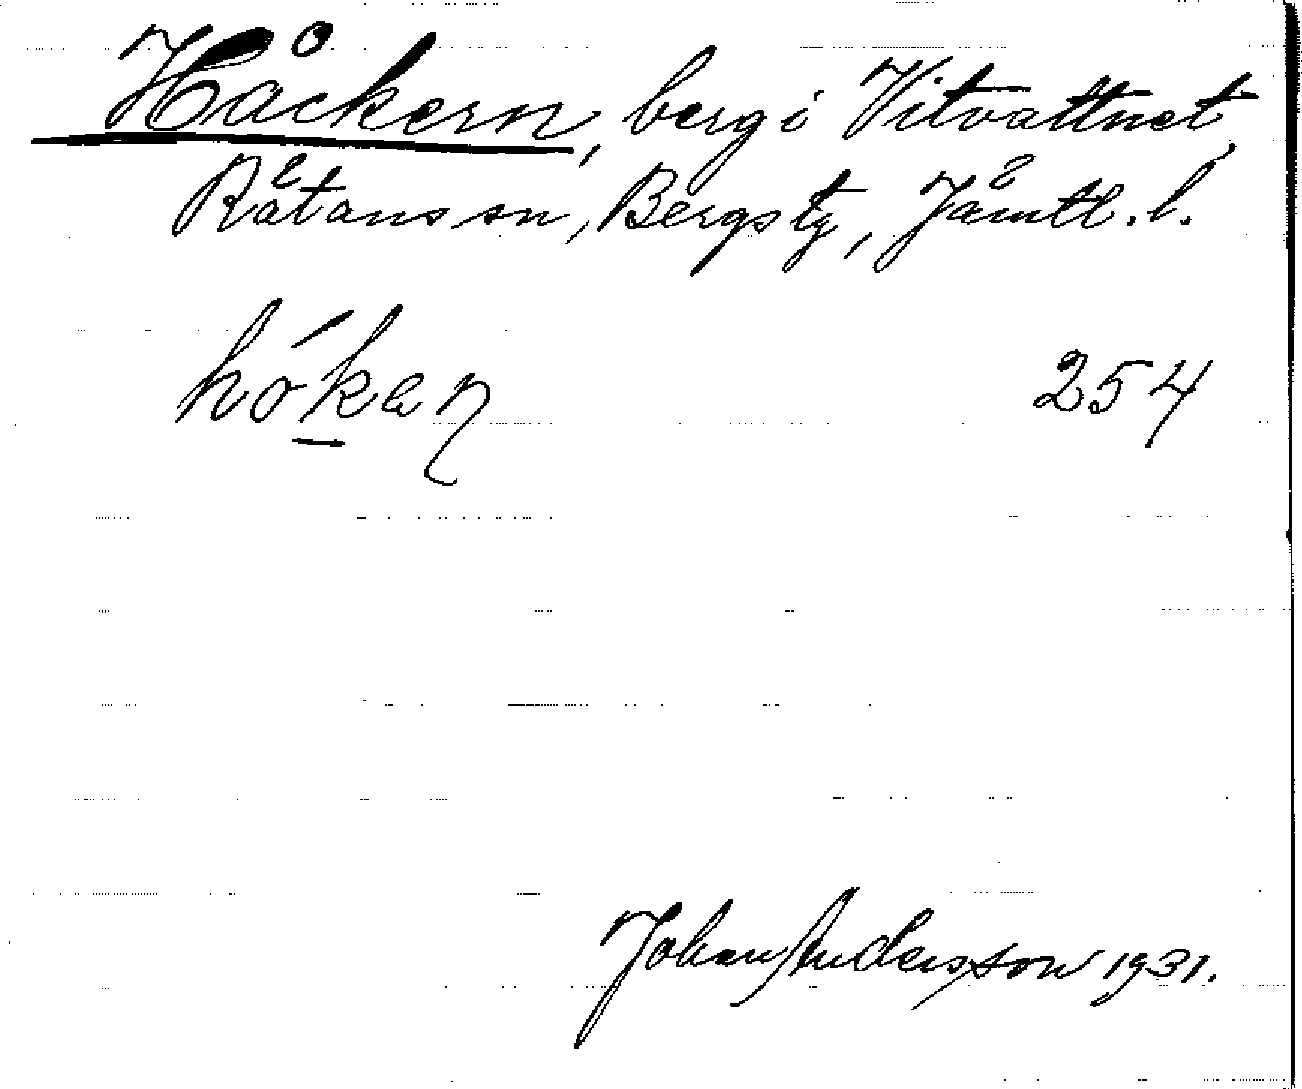 Håckern, berg i Vitvattnet,
Rätans sn, Bergs tg, Jämtl. l.
hó̱kaɳ 254
Johan Andersson 1931.